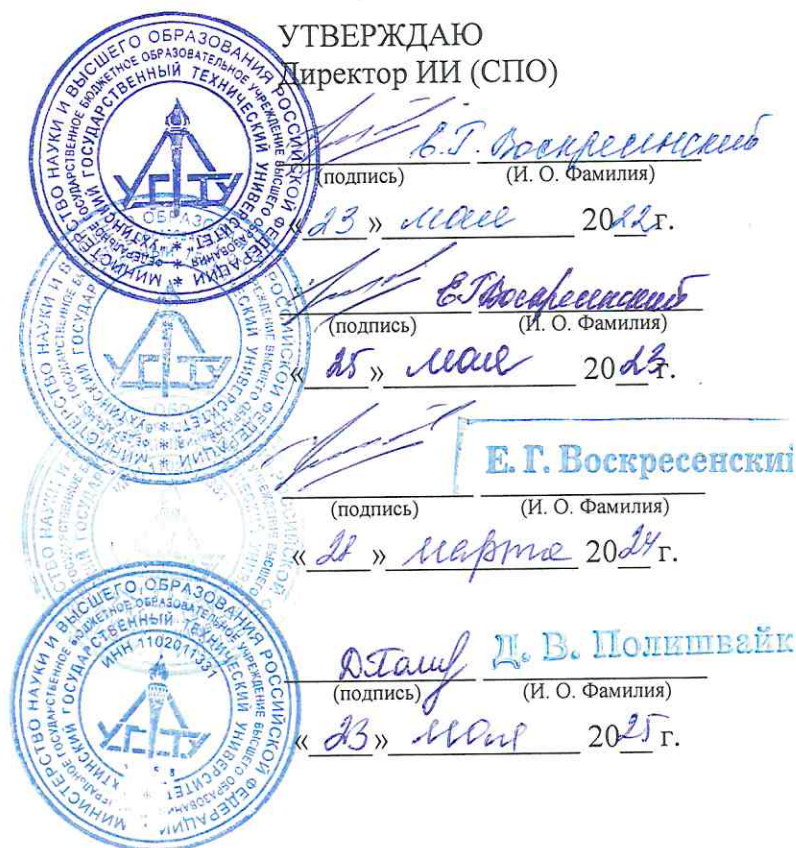 УТВЕРЖДАЮ
Директор ИИ (СПО)
Е.Г. Воскресенский
(подпись) (И. О. Фамилия)
«23» мая 2022г.
Е.Г. Воскресенский
(подпись) (И. О. Фамилия)
«25» мая 2023г.
Е. Г. Воскресенский
(подпись) (И. О. Фамилия)
«28» марта 2024 г.
Д. В. Полишвайк
(подпись) (И. О. Фамилия)
«23» мая 2025 г.
МИНИСТЕРСТВО НАУКИ И ВЫСШЕГО ОБРАЗОВАНИЯ РОССИЙСКОЙ ФЕДЕРАЦИИ
ФЕДЕРАЛЬНОЕ ГОСУДАРСТВЕННОЕ БЮДЖЕТНОЕ ОБРАЗОВАТЕЛЬНОЕ УЧРЕЖДЕНИЕ ВЫСШЕГО ОБРАЗОВАНИЯ
УХТИНСКИЙ ГОСУДАРСТВЕННЫЙ ТЕХНИЧЕСКИЙ УНИВЕРСИТЕТ
УГТУ
УГТУ
МИНИСТЕРСТВО НАУКИ И ВЫСШЕГО ОБРАЗОВАНИЯ РОССИЙСКОЙ ФЕДЕРАЦИИ
ИНН 1102011331
УГТУ